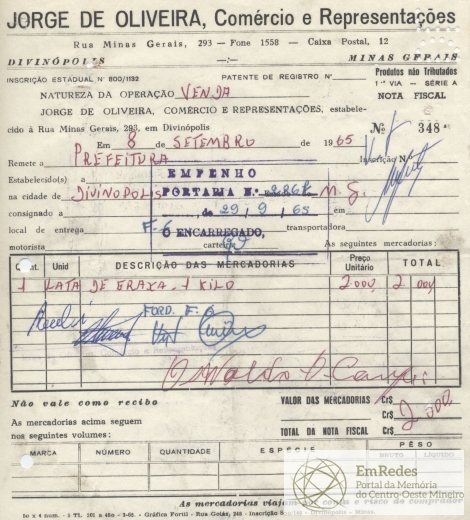 JORGE DE OLIVEIRA, Comércio e Representações
Rua Minas Gerais, 293 - Fone 1558 - Caixa Postal, 12
DIVINÓPOLIS MINAS GERAIS
INSCRIÇÃO ESTADUAL Nº 800/1132 PATENTE DE REGISTRO Nº Produtos não Tributados
1ª VIA - SÉRIE A
NATUREZA DA OPERAÇÃO VENDA NOTA FISCAL
JORGE DE OLIVEIRA, COMÉRCIO E REPRESENTAÇÕES, estabele-
cido à Rua Minas Gerais, 293, em Divinópolis Nº 348
Em 8 de SETEMBRO de 1965
Remete a PREFEITURA Inscrição Nº
Estabelecido(s) a EMPENHO
na cidade de DIVINOPOLIS PORTARIA N.º M. G.
consignado a , de 29/9/65 em
local de entrega F-6 O ENCARREGADO, transportadora
motorista carteira As seguintes mercadorias:
Quant. Unid DESCRIÇÃO DAS MERCADORIAS Preço Unitário TOTAL
1 LATA DE GRAXA 1 KILO 2.000, 2.000,
FORD. F. 6
Não vale como recibo VALOR DAS MERCADORIAS Cr$
As mercadorias acima seguem 2.000
nos seguintes volumes: TOTAL DA NOTA FISCAL Cr$
MARCA NÚMERO QUANTIDADE ESPÉCIE PÊSO
BRUTO LÍQUIDO
EmRedes
Portal da Memória
do Centro-Oeste Mineiro
As mercadorias viajam por conta e risco do comprador